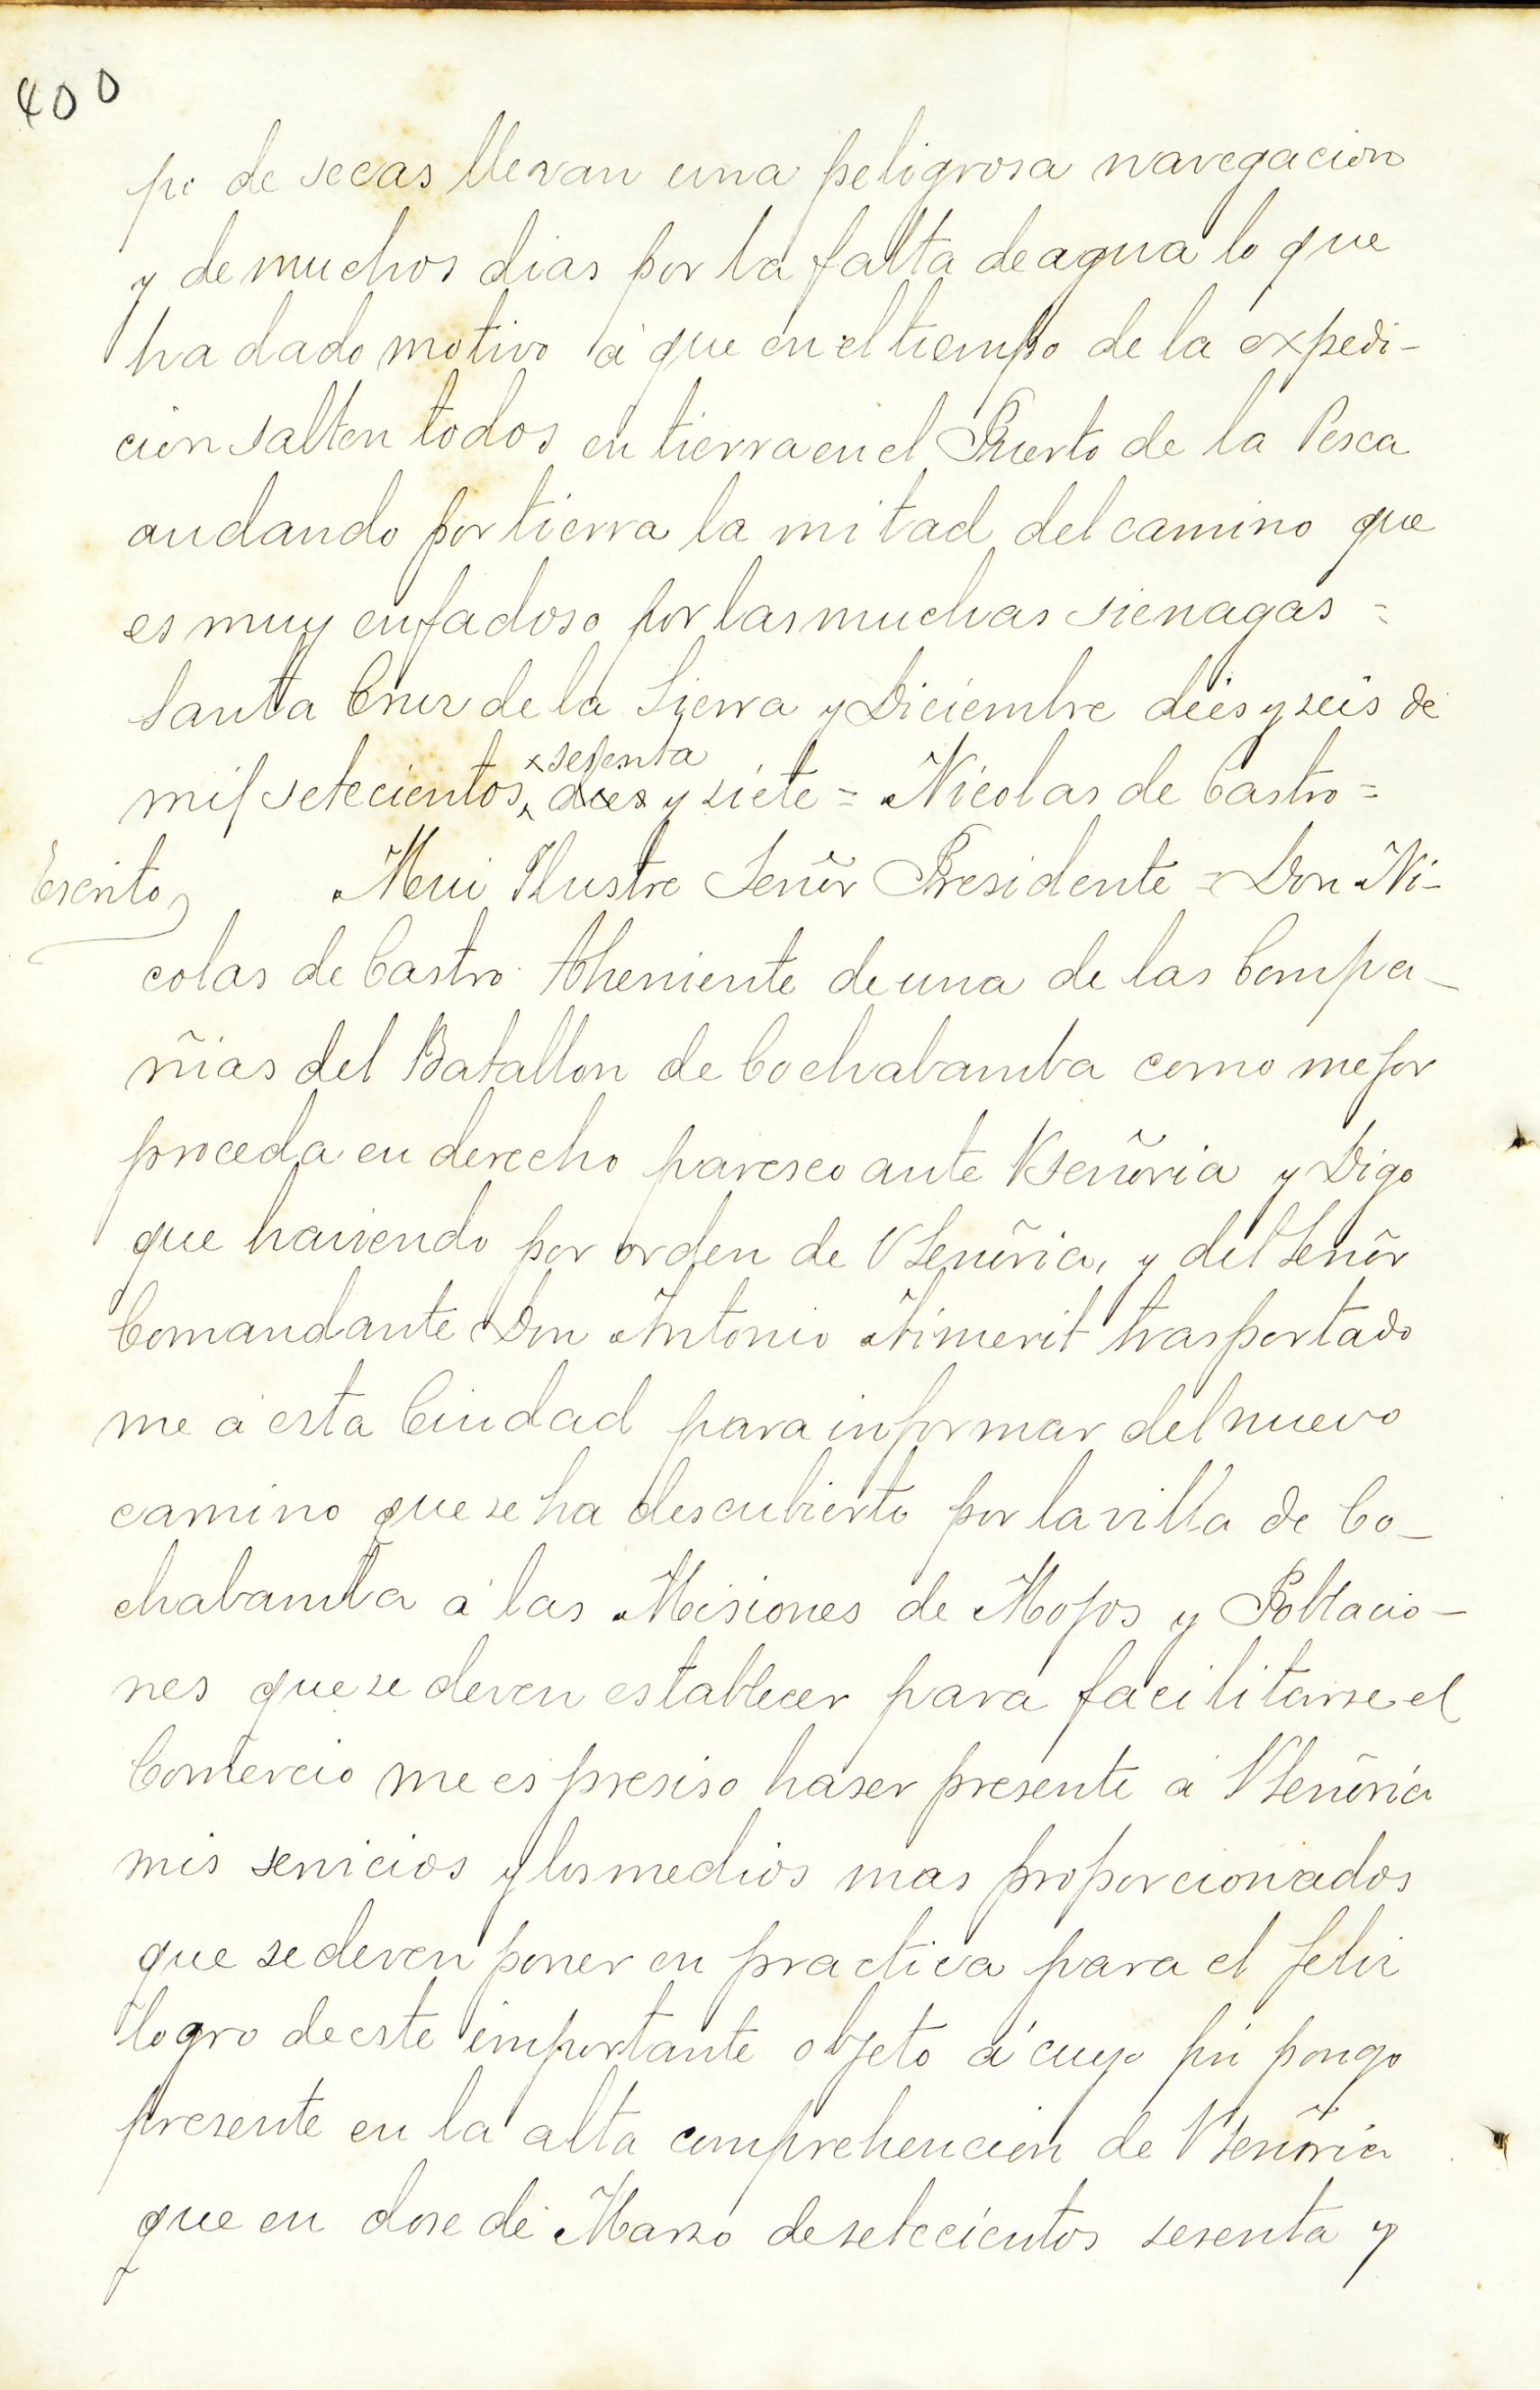 400
po de secas llevan una peligrosa navegacion
y de muchos dias por la falta de agua lo que
ha dado motivo á que en el tiempo de la expedi-
cion salten todos en tierra en el Puerto de la Pesca
andando por tierra la mitad del camino que
es muy enfadoso por las muchas sienagas =
Santa Cruz de la Sierra y Diciembre dies y seis de
sesenta
mil setecientos dies y siete = Nicolas de Castro =
Escrito
Mui Ilustre Señor Presidente = Don Ni-
colas de Castro Theniente de una de las Compa-
ñias del Batallon de Cochabamba como mejor
proceda en derecho paresco ante VSeñoria y Digo
que haviendo por orden de VSeñoria, y del Señor
Comandante Don Antonio Aimerit trasportado
me á esta Ciudad para informar del nuevo
camino que se ha descubierto por la villa de Co-
chabamba á las Misiones de Mojos y Poblacio-
nes que se deven establecer para facilitarse el
Comercio me es presiso haser presente á VSeñoria
mis servicios y los medios mas proporcionados
que se deven poner en practica para el feliz
logro de este importante objeto á cuyo fin pongo
presente en la alta comprehencion de VSeñoria
que en dose de Marzo de setecientos sesenta y